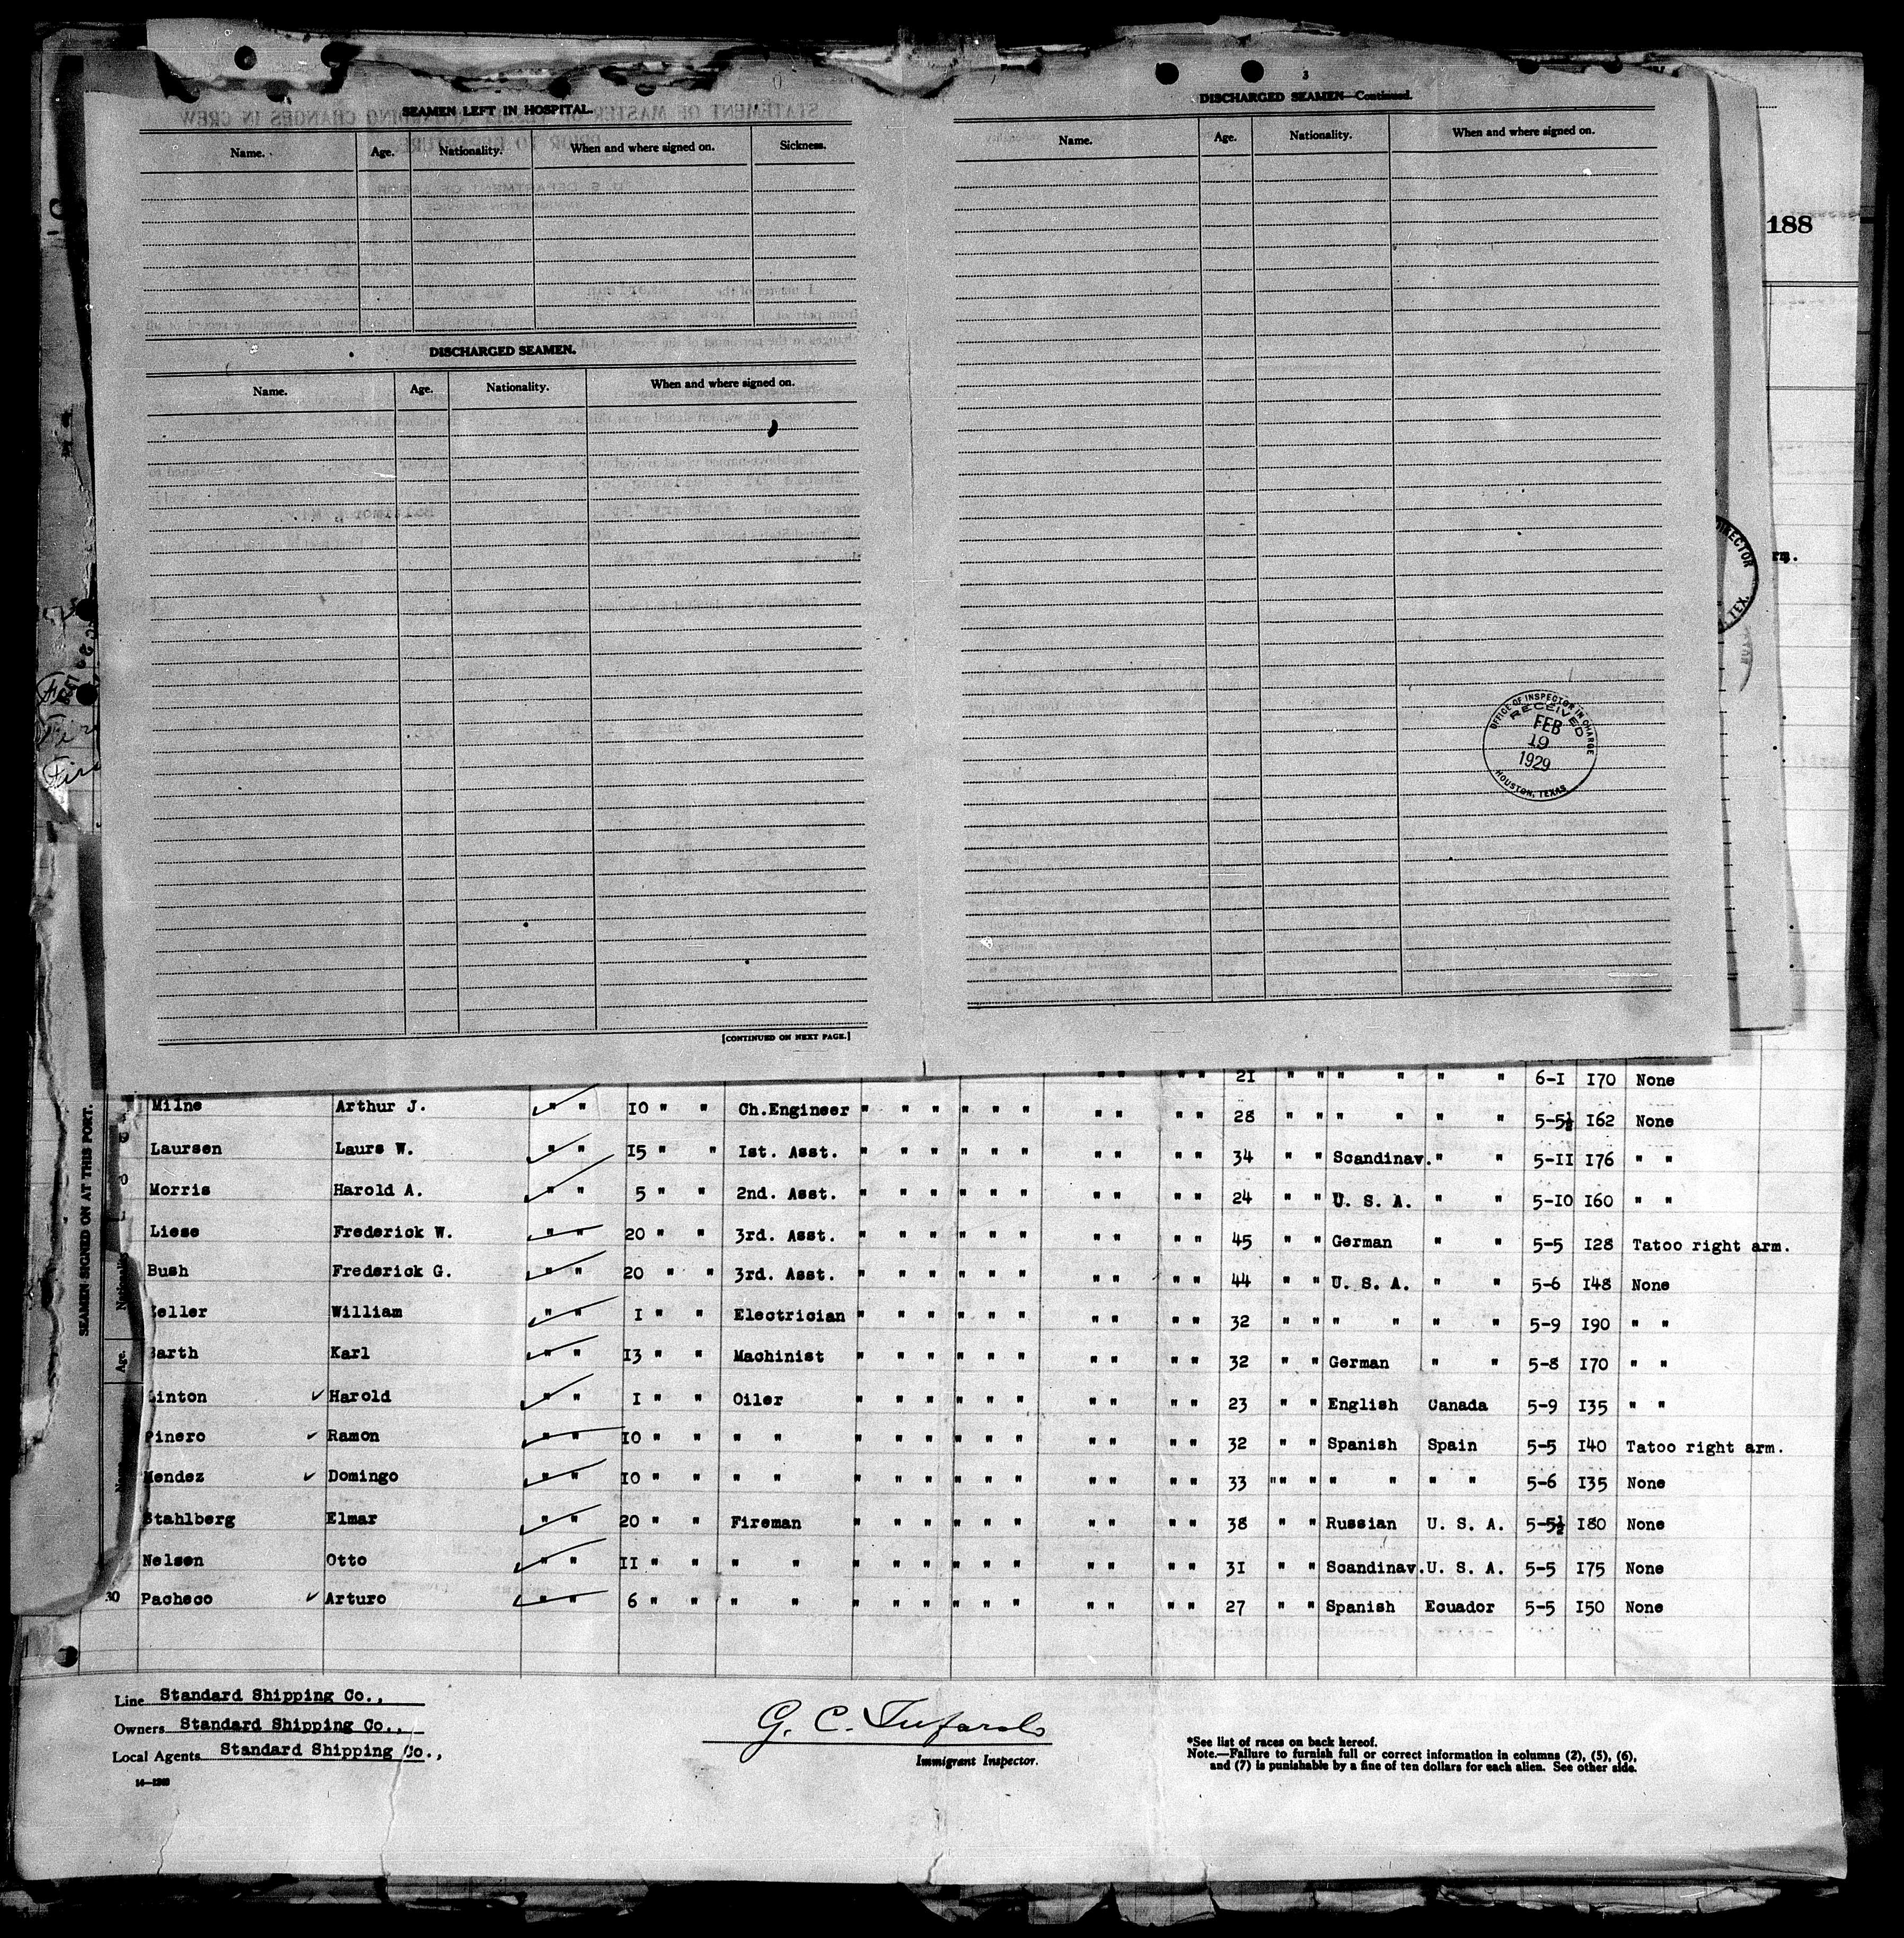 SEAMEN LEFT IN HOSPITAL.
Name. Age. Nationality. When and where signed on. Sickness.
DISCHARGED SEAMEN.
Name. Age. Nationality. When and where signed on.
[CONTINUED ON NEXT PAGE.]
3
DISCHARGED SEAMEN—Continued.
Name. Age. Nationality. When and where signed on.
OFFICE OF INSPECTOR IN CHARGE
RECEIVED
FEB
19
1929
HOUSTON, TEXAS
188
DIRECTOR
TEX.
SEAMEN SIGNED ON AT THIS PORT.
Nationality
Age.
21 " " " " " " 6-1 170 None
Milne Arthur J. " " 10 " " Ch.Engineer " " " " " " " " " " 28 " " " " " " 5-5½ 162 None
Laursen Laurs W. " " 15 " " 1st. Asst. " " " " " " " " " " 34 " " Scandinav. " " 5-11 176 " "
Morris Harold A. " " 5 " " 2nd. Asst. " " " " " " " " " " 24 " " U. S. A. " " 5-10 160 " "
Liese Frederick W. " " 20 " " 3rd. Asst. " " " " " " " " " " 45 " " German " " 5-5 128 Tatoo right arm.
Bush Frederick G. " " 20 " " 3rd. Asst. " " " " " " " " " " 44 " " U. S. A. " " 5-6 148 None
eller William " " 1 " " Electrician " " " " " " " " " " 32 " " " " " " 5-9 190 " "
arth Karl " " 13 " " Machinist " " " " " " " " " " 32 " " German " " 5-8 170 " "
inton Harold " " 1 " " Oiler " " " " " " " " " " 23 " " English Canada 5-9 135 " "
Pinero Ramon " " 10 " " " " " " " " " " " " " " 32 " " Spanish Spain 5-5 140 Tatoo right arm.
Mendez Domingo " " 10 " " " " " " " " " " " " " " 33 " " " " " " " 5-6 135 None
Stahlberg Elmar " " 20 " " Fireman " " " " " " " " " " 38 " " Russian U. S. A. 5-5½ 180 None
Nelsen Otto " " 11 " " " " " " " " " " " " " " 31 " " Scandinav. U. S. A. 5-5 175 None
30 Pacheco Arturo " " 6 " " " " " " " " " " " " " " 27 " " Spanish Ecuador 5-5 150 None
Line Standard Shipping Co.,
Owners Standard Shipping Co.,
Local Agents Standard Shipping Co.,
14—1240
G. C.
Immigrant Inspector.
*See list of races on back hereof.
Note.—Failure to furnish full or correct information in columns (2), (5), (6),
and (7) is punishable by a fine of ten dollars for each alien. See other side.